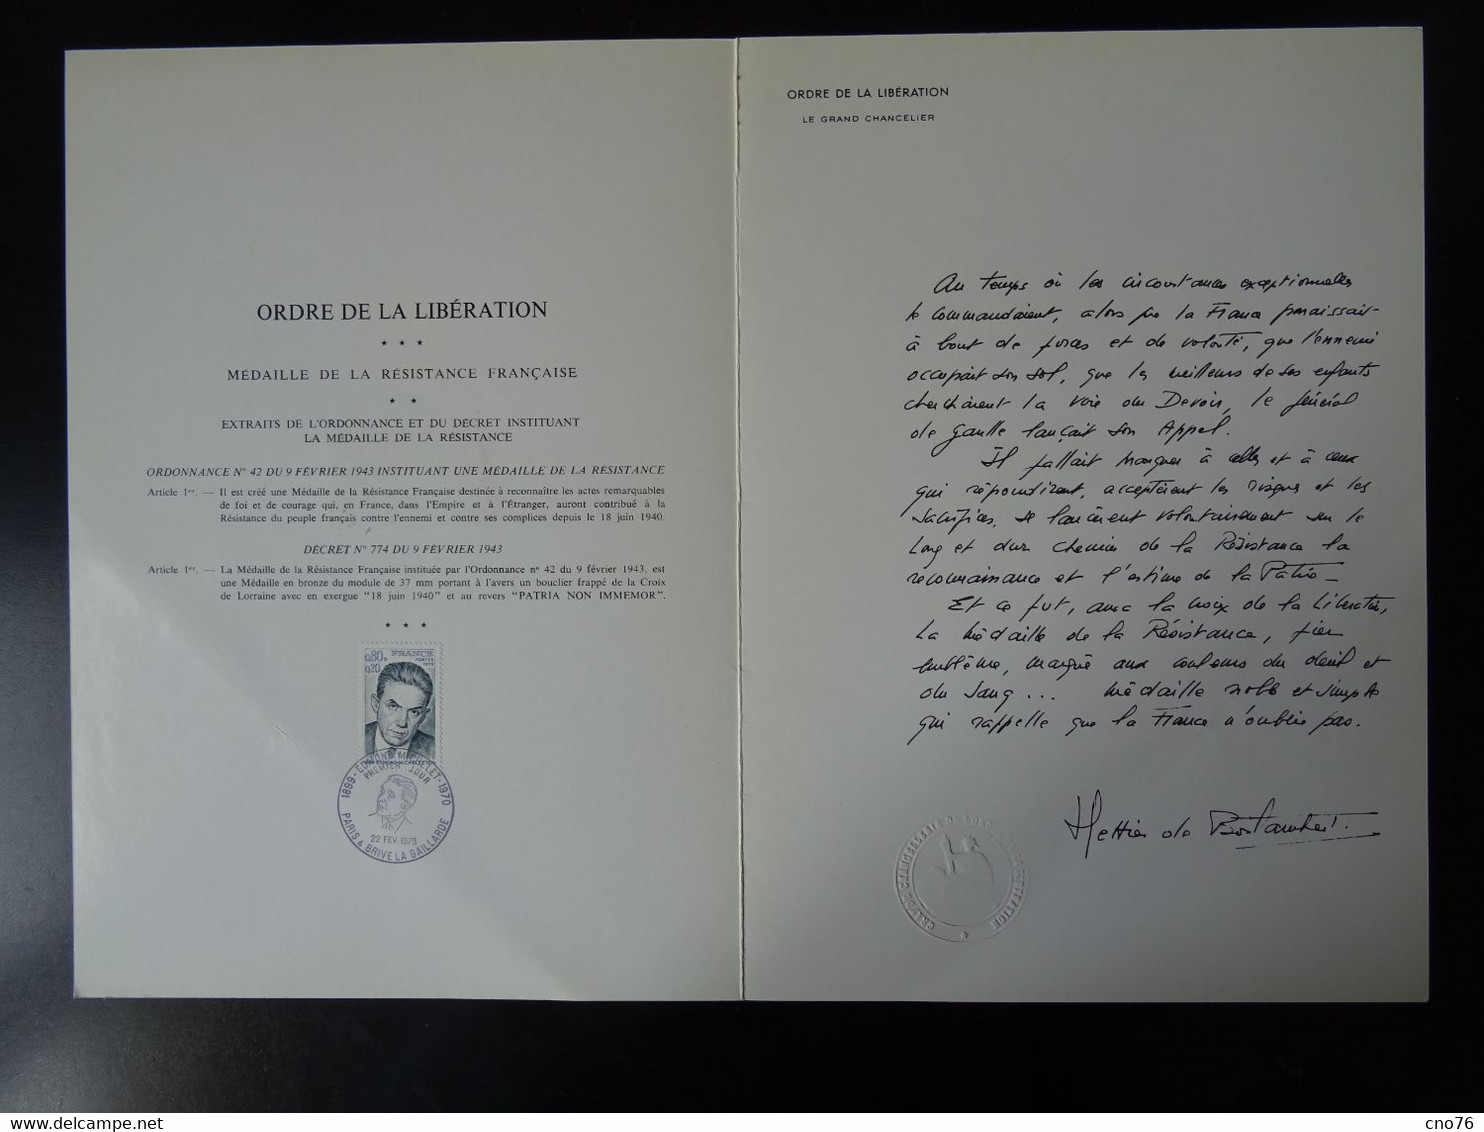 ORDRE DE LA LIBÉRATION
★ ★ ★
MÉDAILLE DE LA RÉSISTANCE FRANÇAISE
★ ★
EXTRAITS DE L'ORDONNANCE ET DU DÉCRET INSTITUANT
LA MÉDAILLE DE LA RÉSISTANCE
ORDONNANCE N° 42 DU 9 FÉVRIER 1943 INSTITUANT UNE MÉDAILLE DE LA RÉSISTANCE
Article 1er. — Il est créé une Médaille de la Résistance Française destinée à reconnaître les actes remarquables
de foi et de courage qui, en France, dans l'Empire et à l'Étranger, auront contribué à la
Résistance du peuple français contre l'ennemi et contre ses complices depuis le 18 juin 1940.
DÉCRET N° 774 DU 9 FÉVRIER 1943
Article 1er. — La Médaille de la Résistance Française instituée par l'Ordonnance n° 42 du 9 février 1943, est
une Médaille en bronze du module de 37 mm portant à l'avers un bouclier frappé de la Croix
de Lorraine avec en exergue "18 juin 1940" et au revers "PATRIA NON IMMEMOR".
★ ★ ★
0,80+
0,20
FRANCE
POSTES
1975
1899-EDMOND MICHELET-1970
PREMIER JOUR
22 FEV. 1975
PARIS & BRIVE LA GAILLARDE
ORDRE DE LA LIBÉRATION
LE GRAND CHANCELIER
Au temps où les circonstances exceptionnelles
le commandaient, alors que la France paraissait
à bout de forces et de volonté, que l'ennemi
occupait son sol, que les meilleurs de ses enfants
cherchaient la voie du Devoir, le Général
de Gaulle lançait son Appel.
Il fallait marquer à celles et à ceux
qui répondirent, acceptèrent les risques et les
sacrifices, se lancèrent volontairement sur le
long et dur chemin de la Résistance la
reconnaissance et l'estime de la Patrie_
Et ce fut, avec la Croix de la Libération,
la Médaille de la Résistance, fier
emblème, marqué aux couleurs du deuil et
du sang ... Médaille noble et simple
qui rappelle que la France n'oublie pas.
Hettier de Boislambert.
cno76